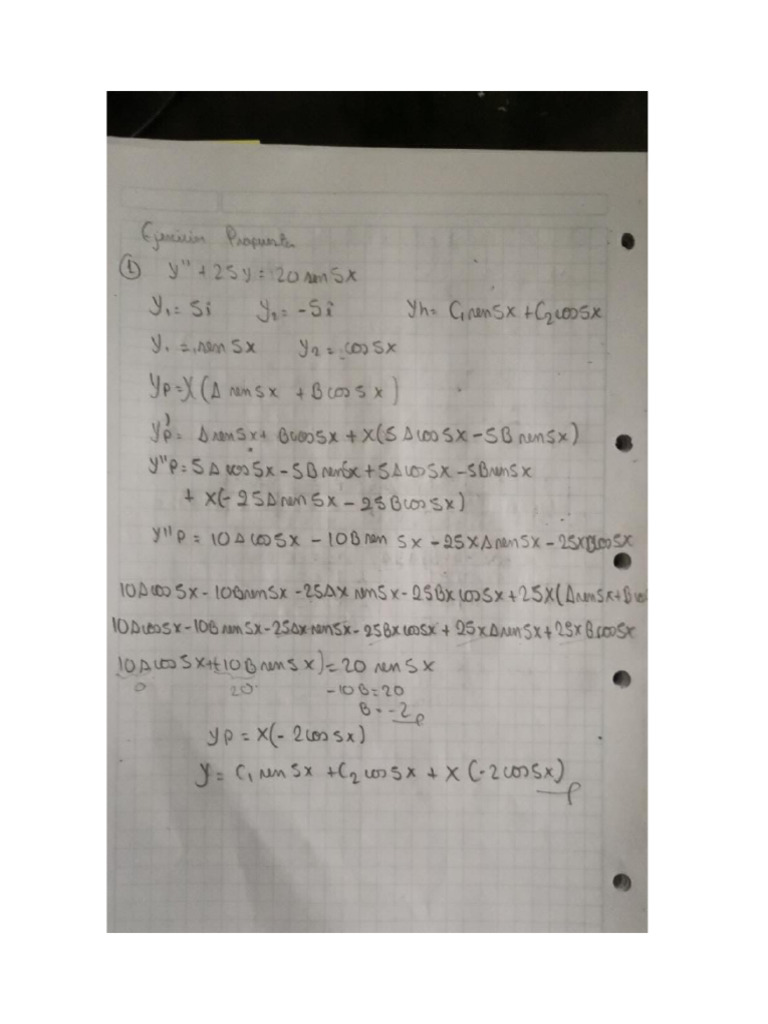 Ejercicios Propuestos
① y'' + 25y = 20 sen5x
y₁ = 5i y₂ = -5i yh = C₁sen5x + C₂cos5x
y₁ = sen 5x y₂ = cos5x
yp = x(A sen5x + B cos5x)
y'p = Asen5x + Bcos5x + x(5Acos5x - 5B sen5x)
y''p = 5Acos5x - 5Bsen5x + 5Acos5x - 5Bsen5x
+ x(-25Asen5x - 25Bcos5x)
y''p = 10Acos5x - 10Bsen 5x - 25xAsen5x - 25xBcos5x
10Acos5x - 10Bsen5x - 25Ax sen5x - 25Bx cos5x + 25x(Asen5x + B co
10Acos5x - 10Bsen5x - 25Axsen5x - 25Bxcos5x + 25xAsen5x + 25xBcos5x
10Acos5x + (-10Bsen5x) = 20 sen5x
0 20 -10B = 20
B = -2
yp = x(-2cos5x)
y = C₁sen5x + C₂cos5x + x(-2cos5x)